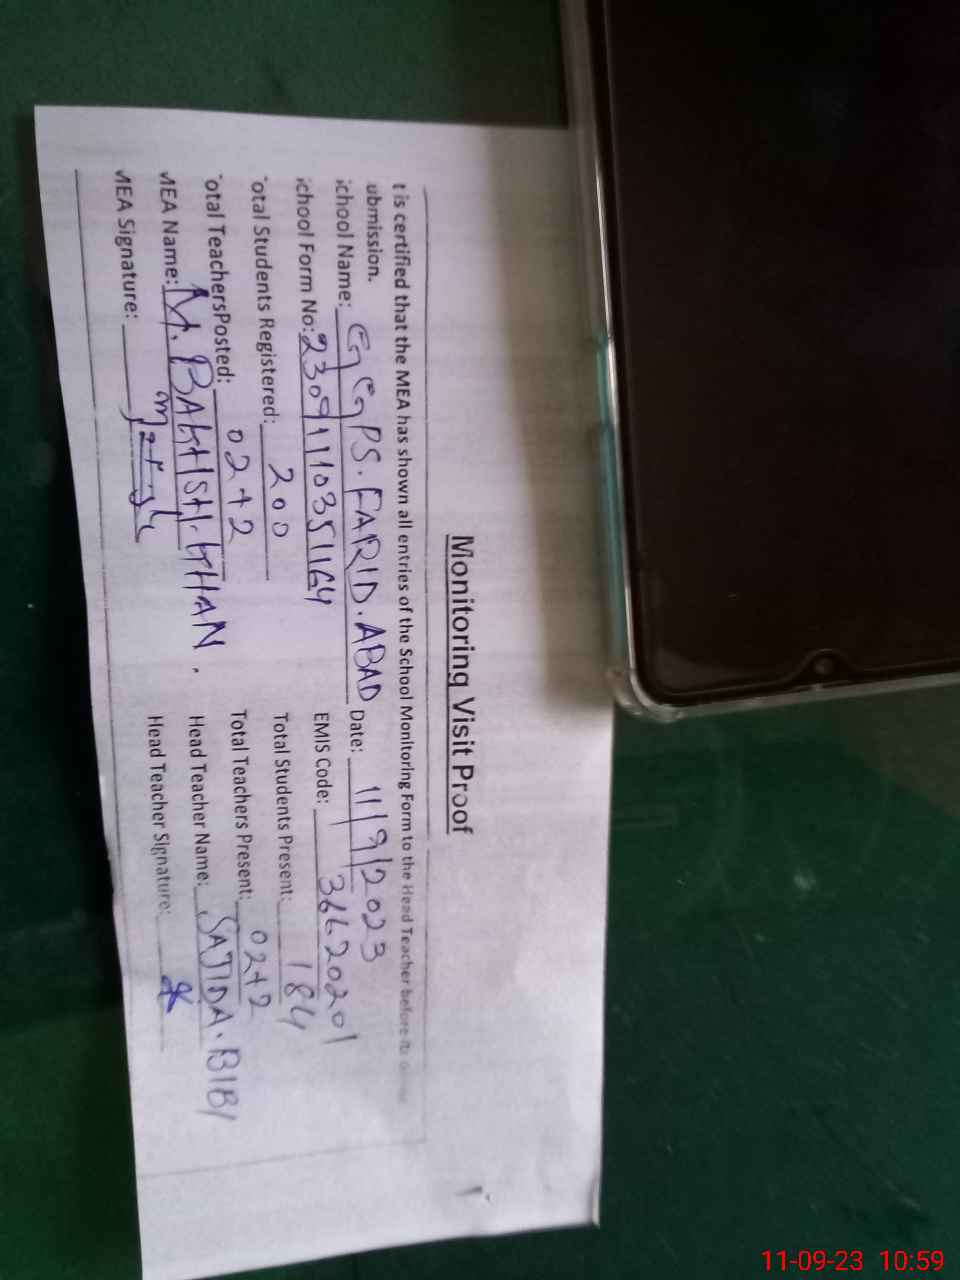 Monitoring Visit Proof
t is certified that the MEA has shown all entries of the School Monitoring Form to the Head Teacher before its
ubmission.
ichool Name: GGPS. FARID. ABAD Date: 11/9/2023
ichool Form No: 23091110351164 EMIS Code: 36620201
otal Students Registered: 200 Total Students Present: 184
otal TeachersPosted: 02+2 Total Teachers Present: 02+2
MEA Name: M. BAKHSH. KHAN. Head Teacher Name: SAJIDA. BIBI
MEA Signature: Head Teacher Signature:
11-09-23 10:59